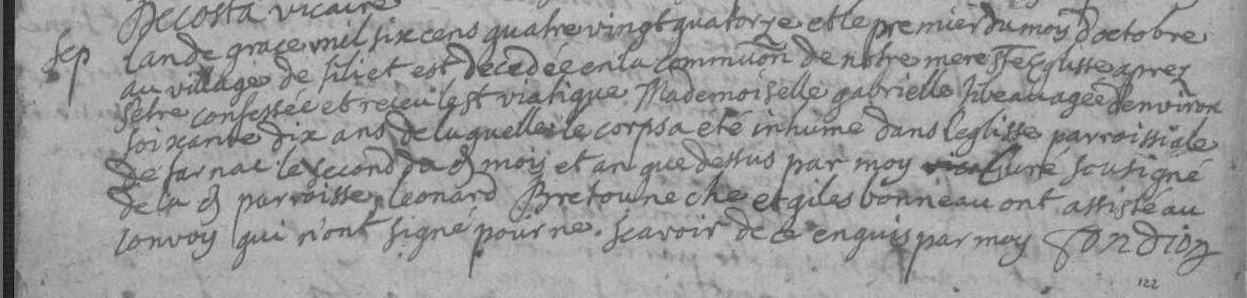 Decosta vicaire
Sep Lan de grace mil six cens quatre vingt quatorze et le premier du mois d'octobre
au village de filiet est decedée en la commuon de notre mere Ste Eglisse aprez
setre confessée et receu le st viatique Mademoiselle gabrielle agée denviron
soixante dix ans de laquelle le corps a eté inhumé dans leglisse parroissiale
de tarnac le second du d mois et an que dessus par moy curé sousigné
de la d parroisse leonard Bretouneche et giles bonneau ont assisté au
convoy qui n'ont signé pour ne scavoir de ce enquis par moy
122